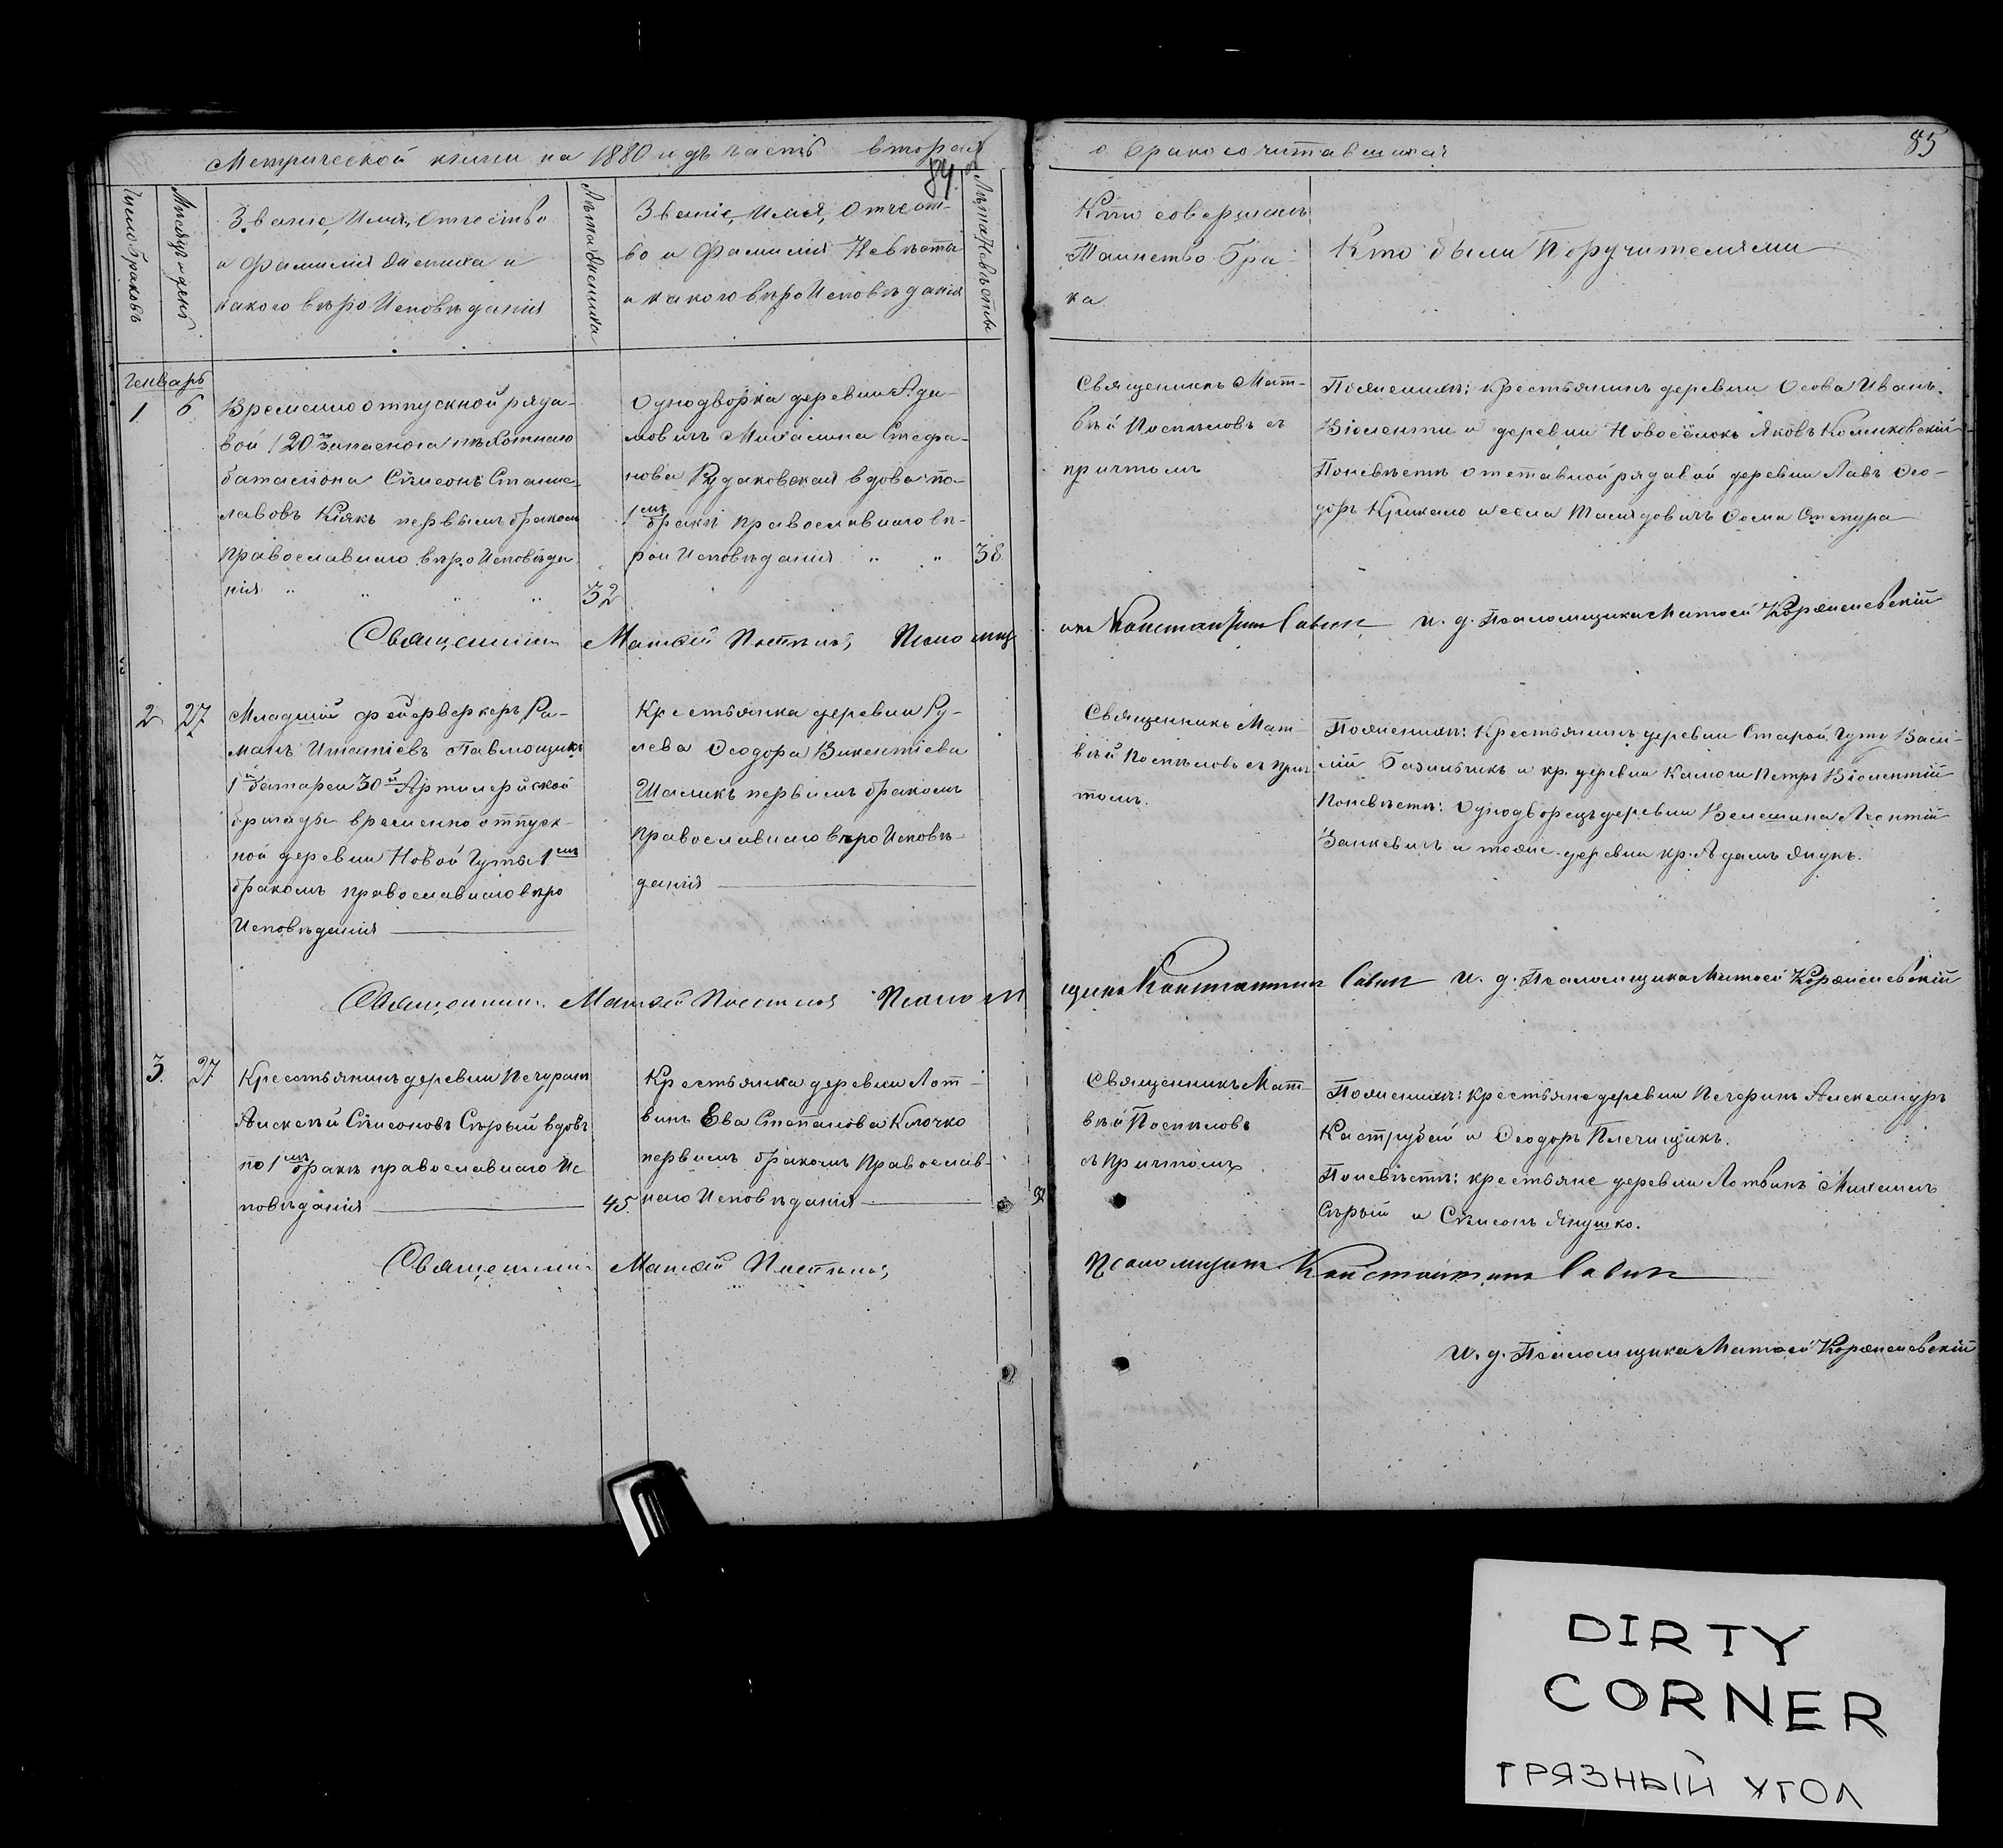 Метрической книги на 1880 годъ часть вторая
84.
о бракосочитавшихся
85
Число браковъ
Мѣсяцъ и день
Званіе, Имя, Отчество
и Фамилія Жениха и
какого вѣроИсповѣданія
Лѣта Жениха
Званіе, Имя, Отчест-
во и Фамилія Невѣсты
и какого вѣроИсповѣданія
Лѣта Невѣсты
Кто совершалъ
Таинство Бра-
ка.
Кто были Поручителями
Генварь
1 6
Временно отпускной рядо-
вой 120 Запаснога пѣхотнаго
баталіона Сѵмеонъ Станис-
лавовъ Кіякъ первымъ бракомъ
Православнаго вѣроИсповѣда
нія " " " " 32
Однодворка деревни Ада-
мовичъ Михалина Стефа-
нова Рудаковская вдова по-
1мъ бракѣ Православнаго вѣ-
роИсповѣданія " " 38
Священникъ Мат-
вѣй Поспѣловъ съ
причтомъ
Поженихѣ: крестьянинъ деревни Осова Иванъ
Віоленти и деревни Новосёлокъ Яковъ
Поневѣстѣ отставной рядовой деревни Лавъ Ѳео-
доръ Крикало и села Ѳома Стекура
Священникъ Матѳей Поспѣловъ Псаломщ
икъ Константинъ Савич и. д. Псаломщика Матѳей Корженевскій
2 27
Младшій фейерверкеръ Ро-
манъ Игнатіевъ Павлющикъ
1й батареи 30й Артилерійской
бригады временно отпуск-
ной деревни Новой Гуты 1мъ
бракомъ православнаго вѣро
Исповѣданія
Крестьянка деревни Ру-
лева Ѳеодора Викентіева
Шаликъ первымъ бракомъ
Православнаго вѣроИсповѣ-
данія
Священникъ Мат-
вѣй Поспѣловъ съ прич
томъ.
Поженихѣ: Крестьянинъ деревни Старой Гуты Васи-
лій и кр. деревни Петръ Віолентій
Поневѣстѣ: Однодворецъ деревни Велешина Леонтій
Занкевичъ и тойже деревни кр. Адамъ Янукъ.
Священникъ Матѳей Поспѣловъ Псалом
щикъ Константинъ Савич и. д. Псаломщика Матѳей Корженевскій
3. 27
Крестьянинъ деревни Печуранъ
Алексѣй Сѵмеоновъ Сѣрый вдовъ
по 1мъ бракѣ православнаго Ис
повѣданія 45.
Крестьянка деревни Лот-
винъ Ева Степанова Клочко
первымъ бракомъ Православ-
наго Исповѣданія
Священникъ Мат-
вѣй Поспѣловъ
съ Причтомъ
Поженихѣ: крестьяне деревни Печуранъ Александръ
Каструбей и Ѳеодоръ Плечищикъ.
Поневѣстѣ: крестьяне деревни Лотвинъ Михаилъ
Сѣрый и Сѵмеонъ Янушко.
Священникъ Матѳей Поспѣловъ
Псаломщикъ Константинъ Савич
и. д. Псаломщика Матѳей Корженевскій
DIRTY
CORNER
ГРЯЗНЫЙ УГОЛ